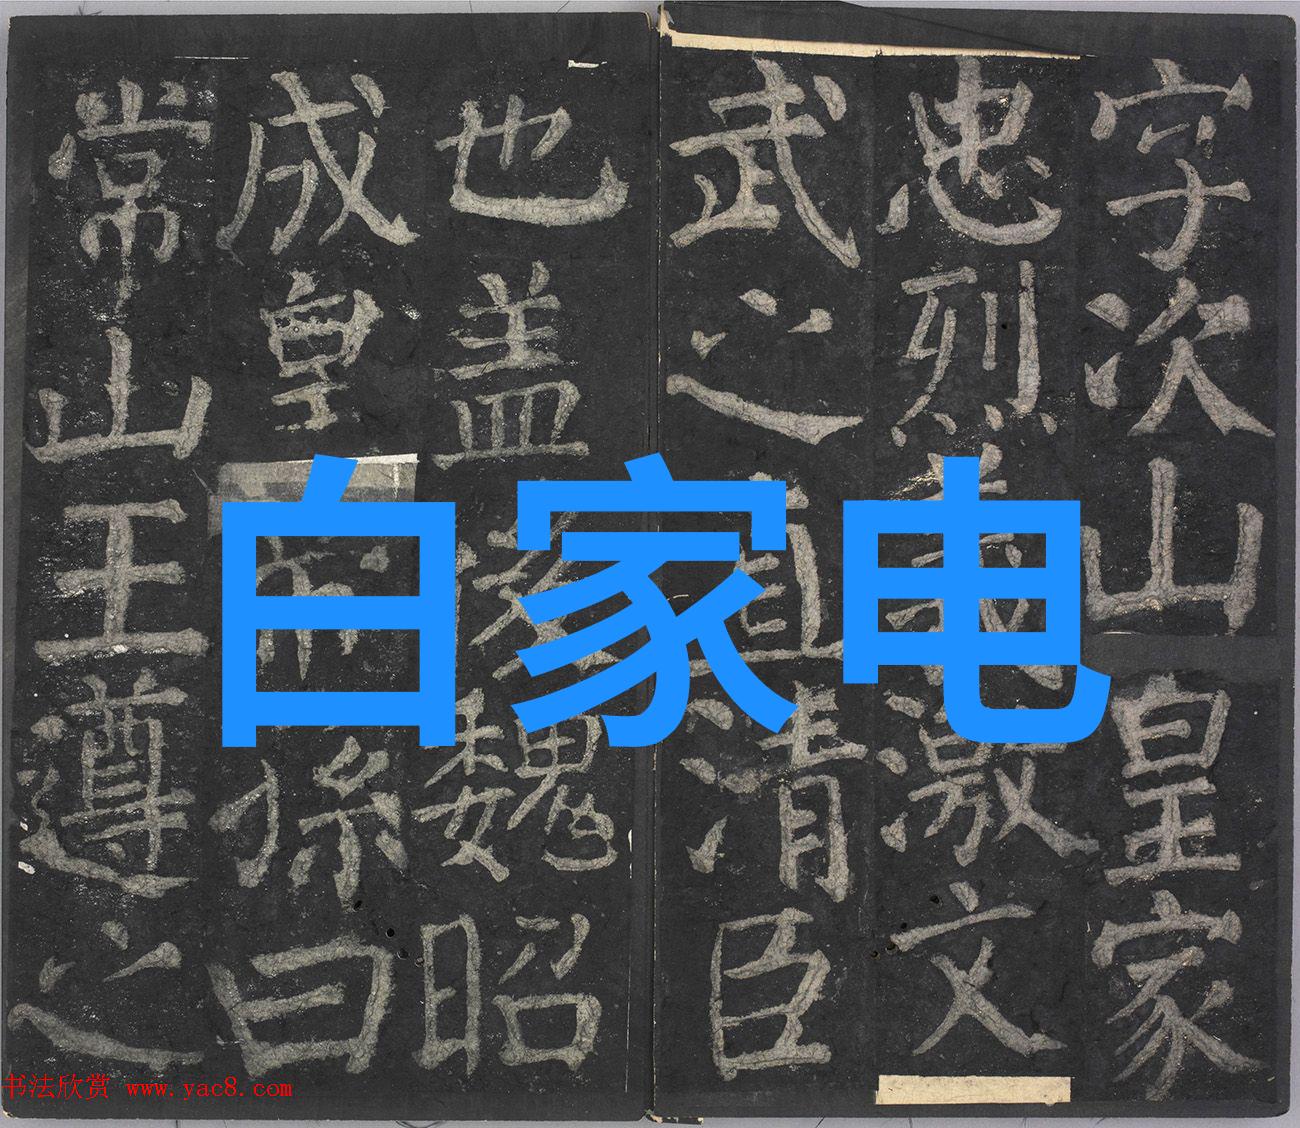 字次山皇家
忠烈義激文
武之直清臣
也盖後魏昭
成皇帝孫曰
常山王遵之
白家电
书法欣赏 www.yac8.com